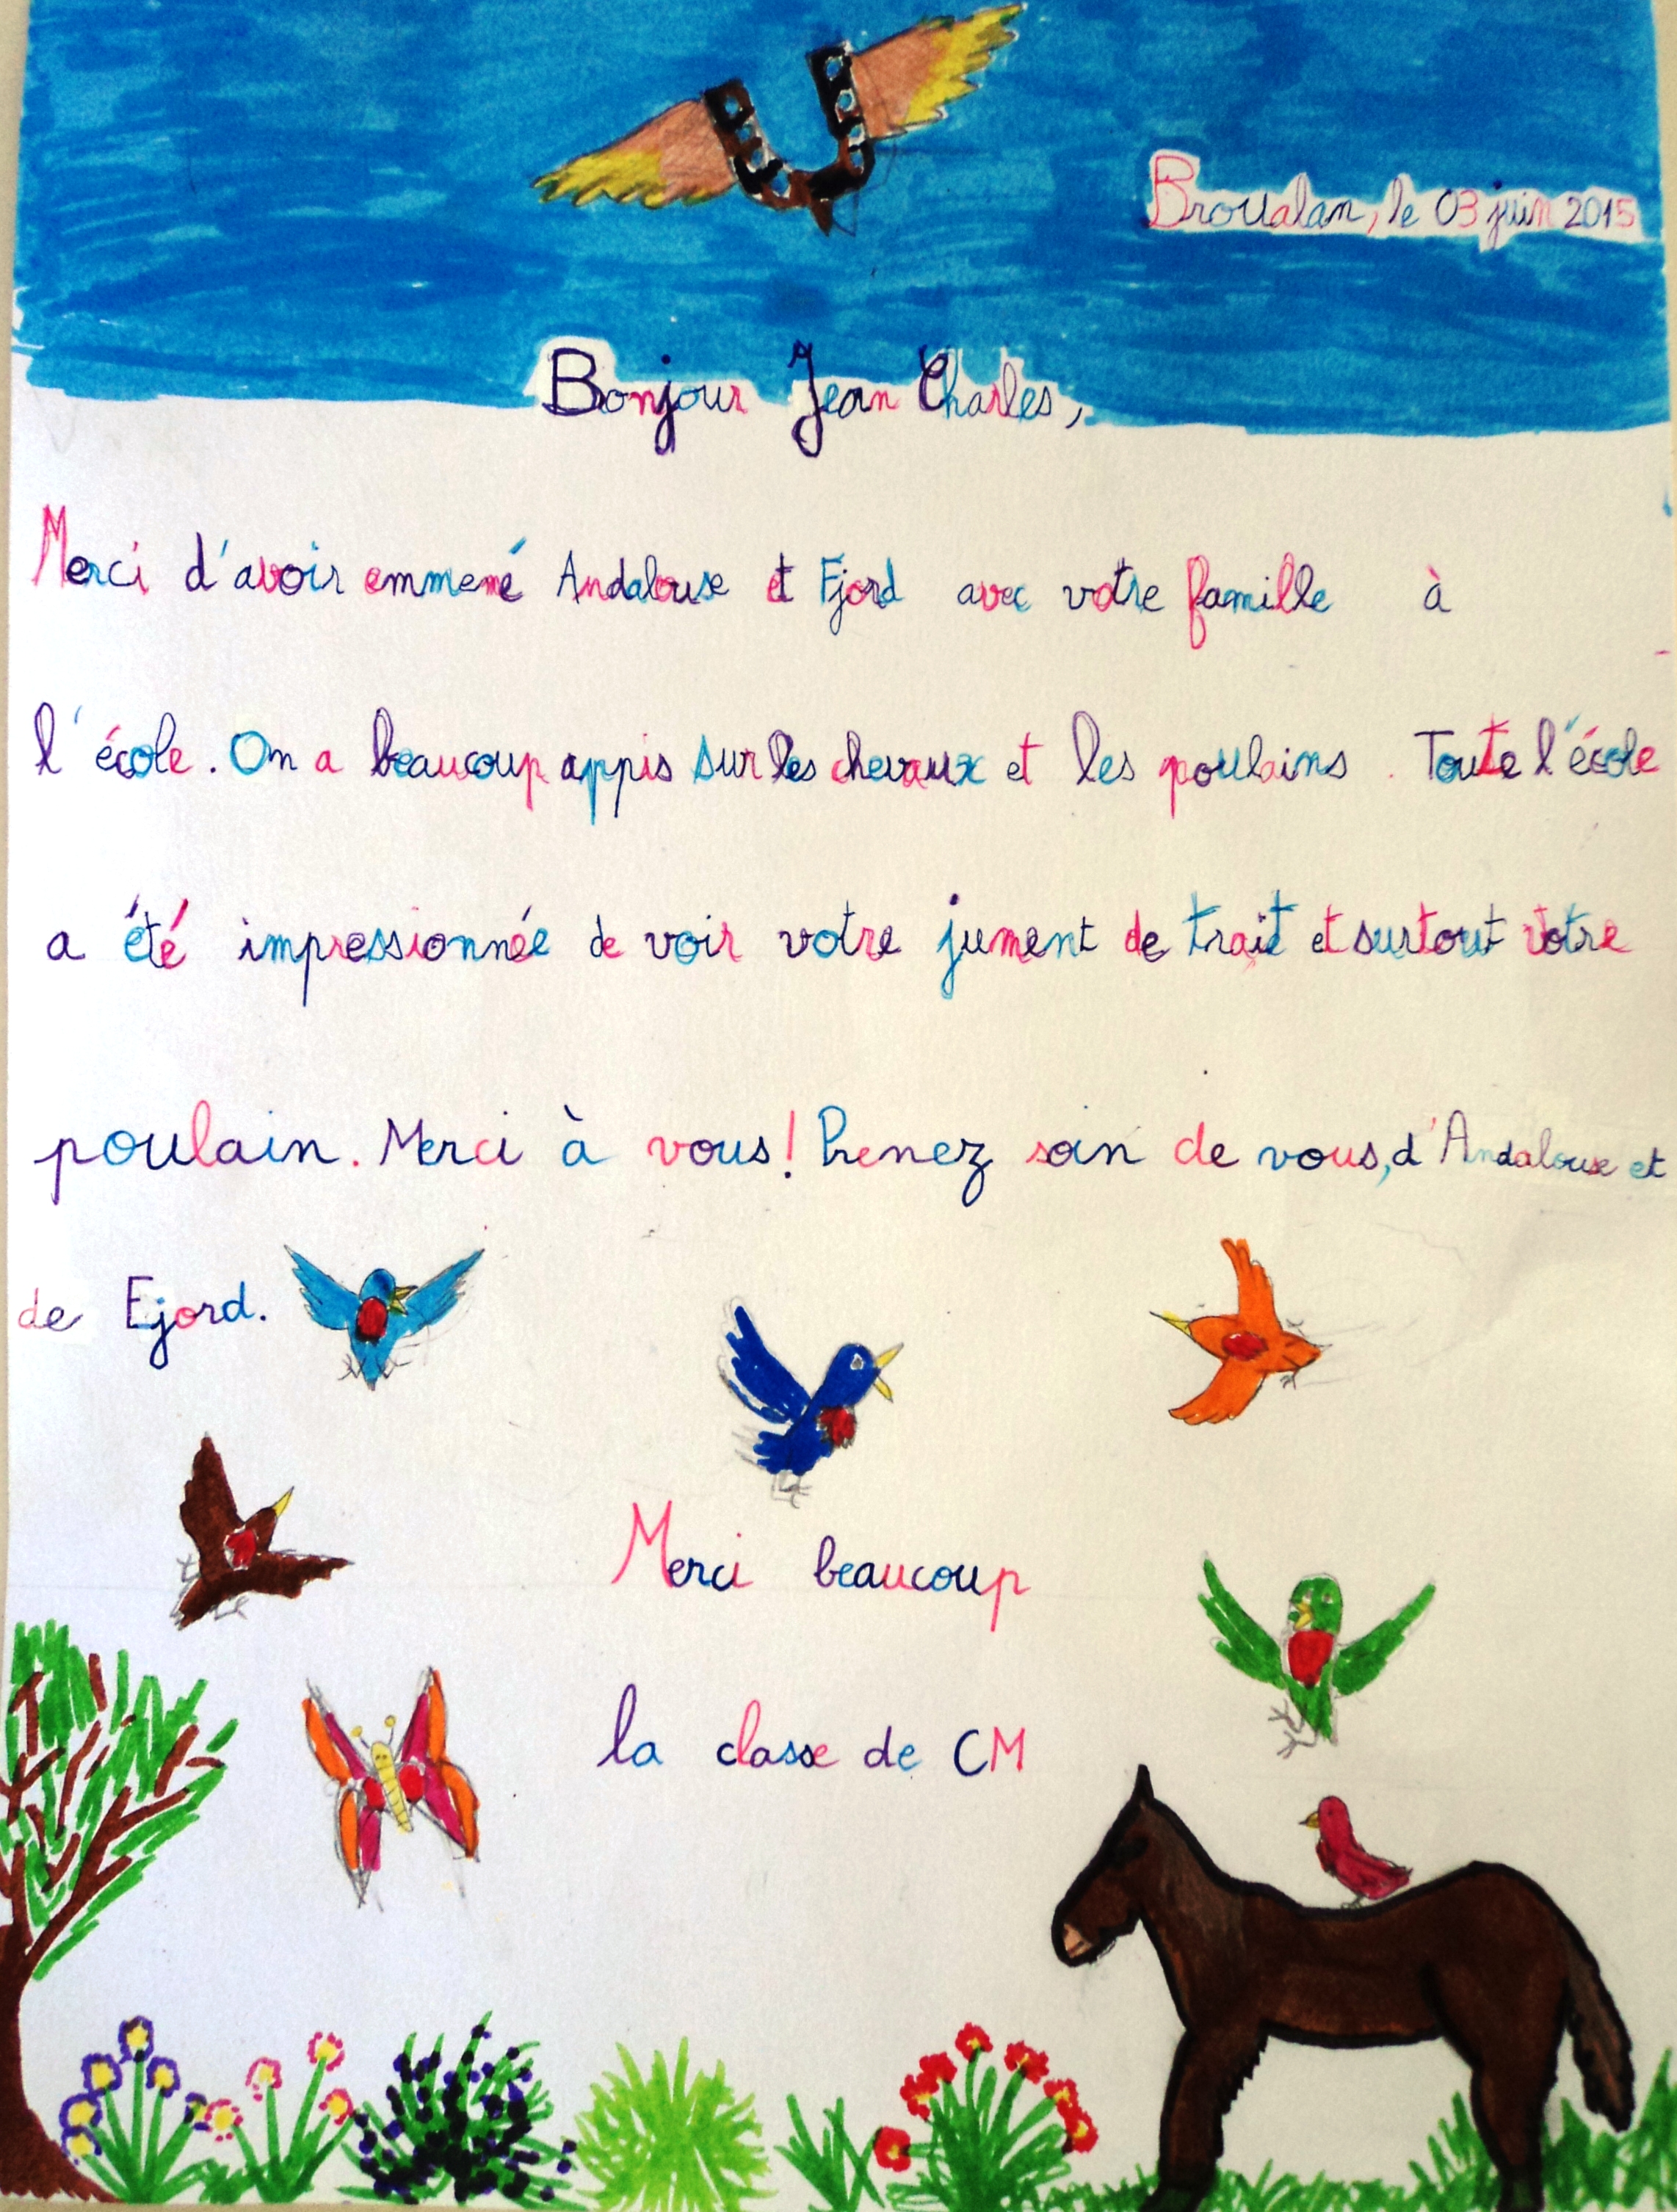 Broualan, le 03 juin 2015
Bonjour Jean Charles,
Merci d'avoir emmené Andalouse et Fjord avec votre famille à
l'école. On a beaucoup appis sur les chevaux et les poulains. Toute l'école
a été impressionnée de voir votre jument de trait et surtout votre
poulain. Merci à vous! Prenez soin de vous, d'Andalouse et
de Fjord.
Merci beaucoup
la classe de CM